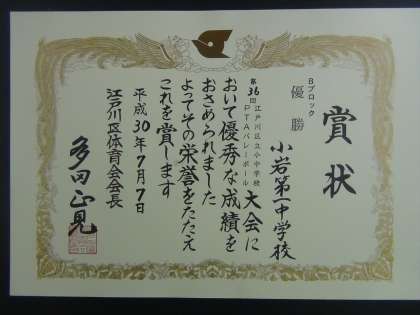 賞状
Bブロック
優勝
小岩第一中学校
第36回江戸川区立小中学校PTAバレーボール大会に
おいて優秀な成績を
おさめられました
よってその栄誉をたたえ
これを賞します
平成30年7月7日
江戸川区体育会会長
多田正見